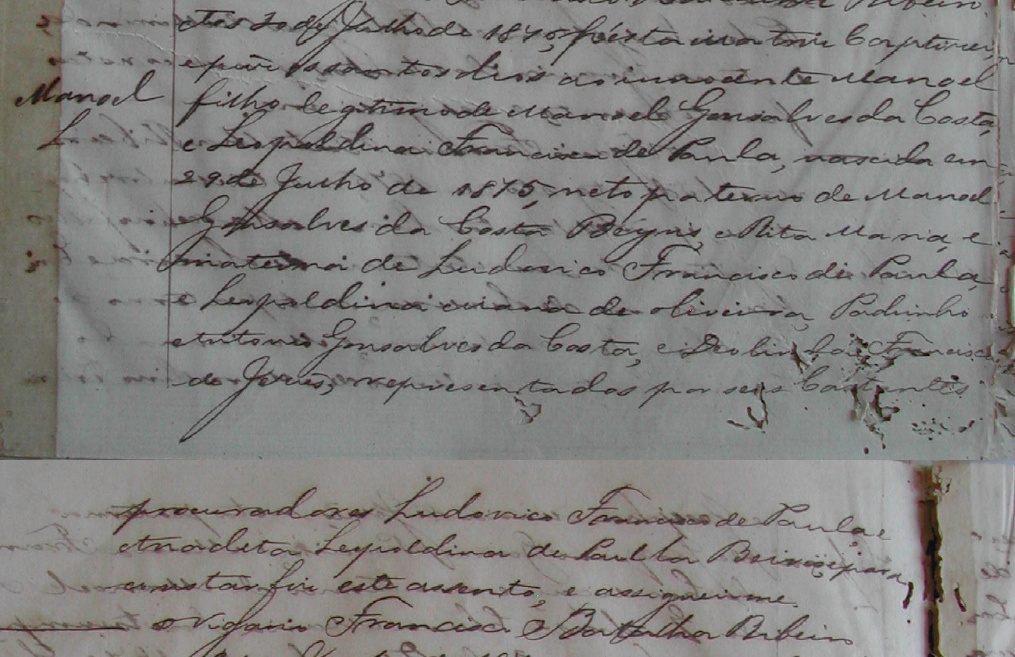 de Julho de 1875, n'esta matriz baptizei,
e puz os santos oleos ao innocente Manoel
Manoel
filho legitimo de Manoel Gonsalves da Costa,
e Leopoldina Francisca de Paula, nascido em
29 de Julho de 1875, neto paterno de Manoel
Gonsalves da Costa e Rita Maria, e
materno de Ludovico Francisco de Paula,
e Leopoldina de Oliveira, Padrinho
Antonio Gonsalves da Costa, e Francisca
de Jesus, representados por seus
procuradores Ludovico Francisco de Paula, e
Leopoldina de Paula e para
constar fiz este assento, e assignei-me.
O Vigario Francisco Ribeiro